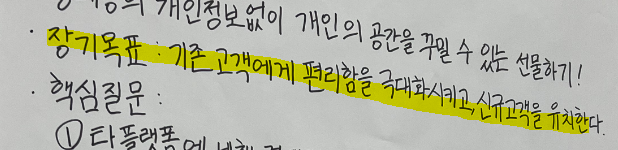 개인정보없이 개인의 공간을 꾸밀 수 있는 선물하기!
· 장기목표 : 기존고객에게 편리함을 극대화시키고, 신규고객을 유치한다.
· 핵심질문 :
① 타플랫폼에